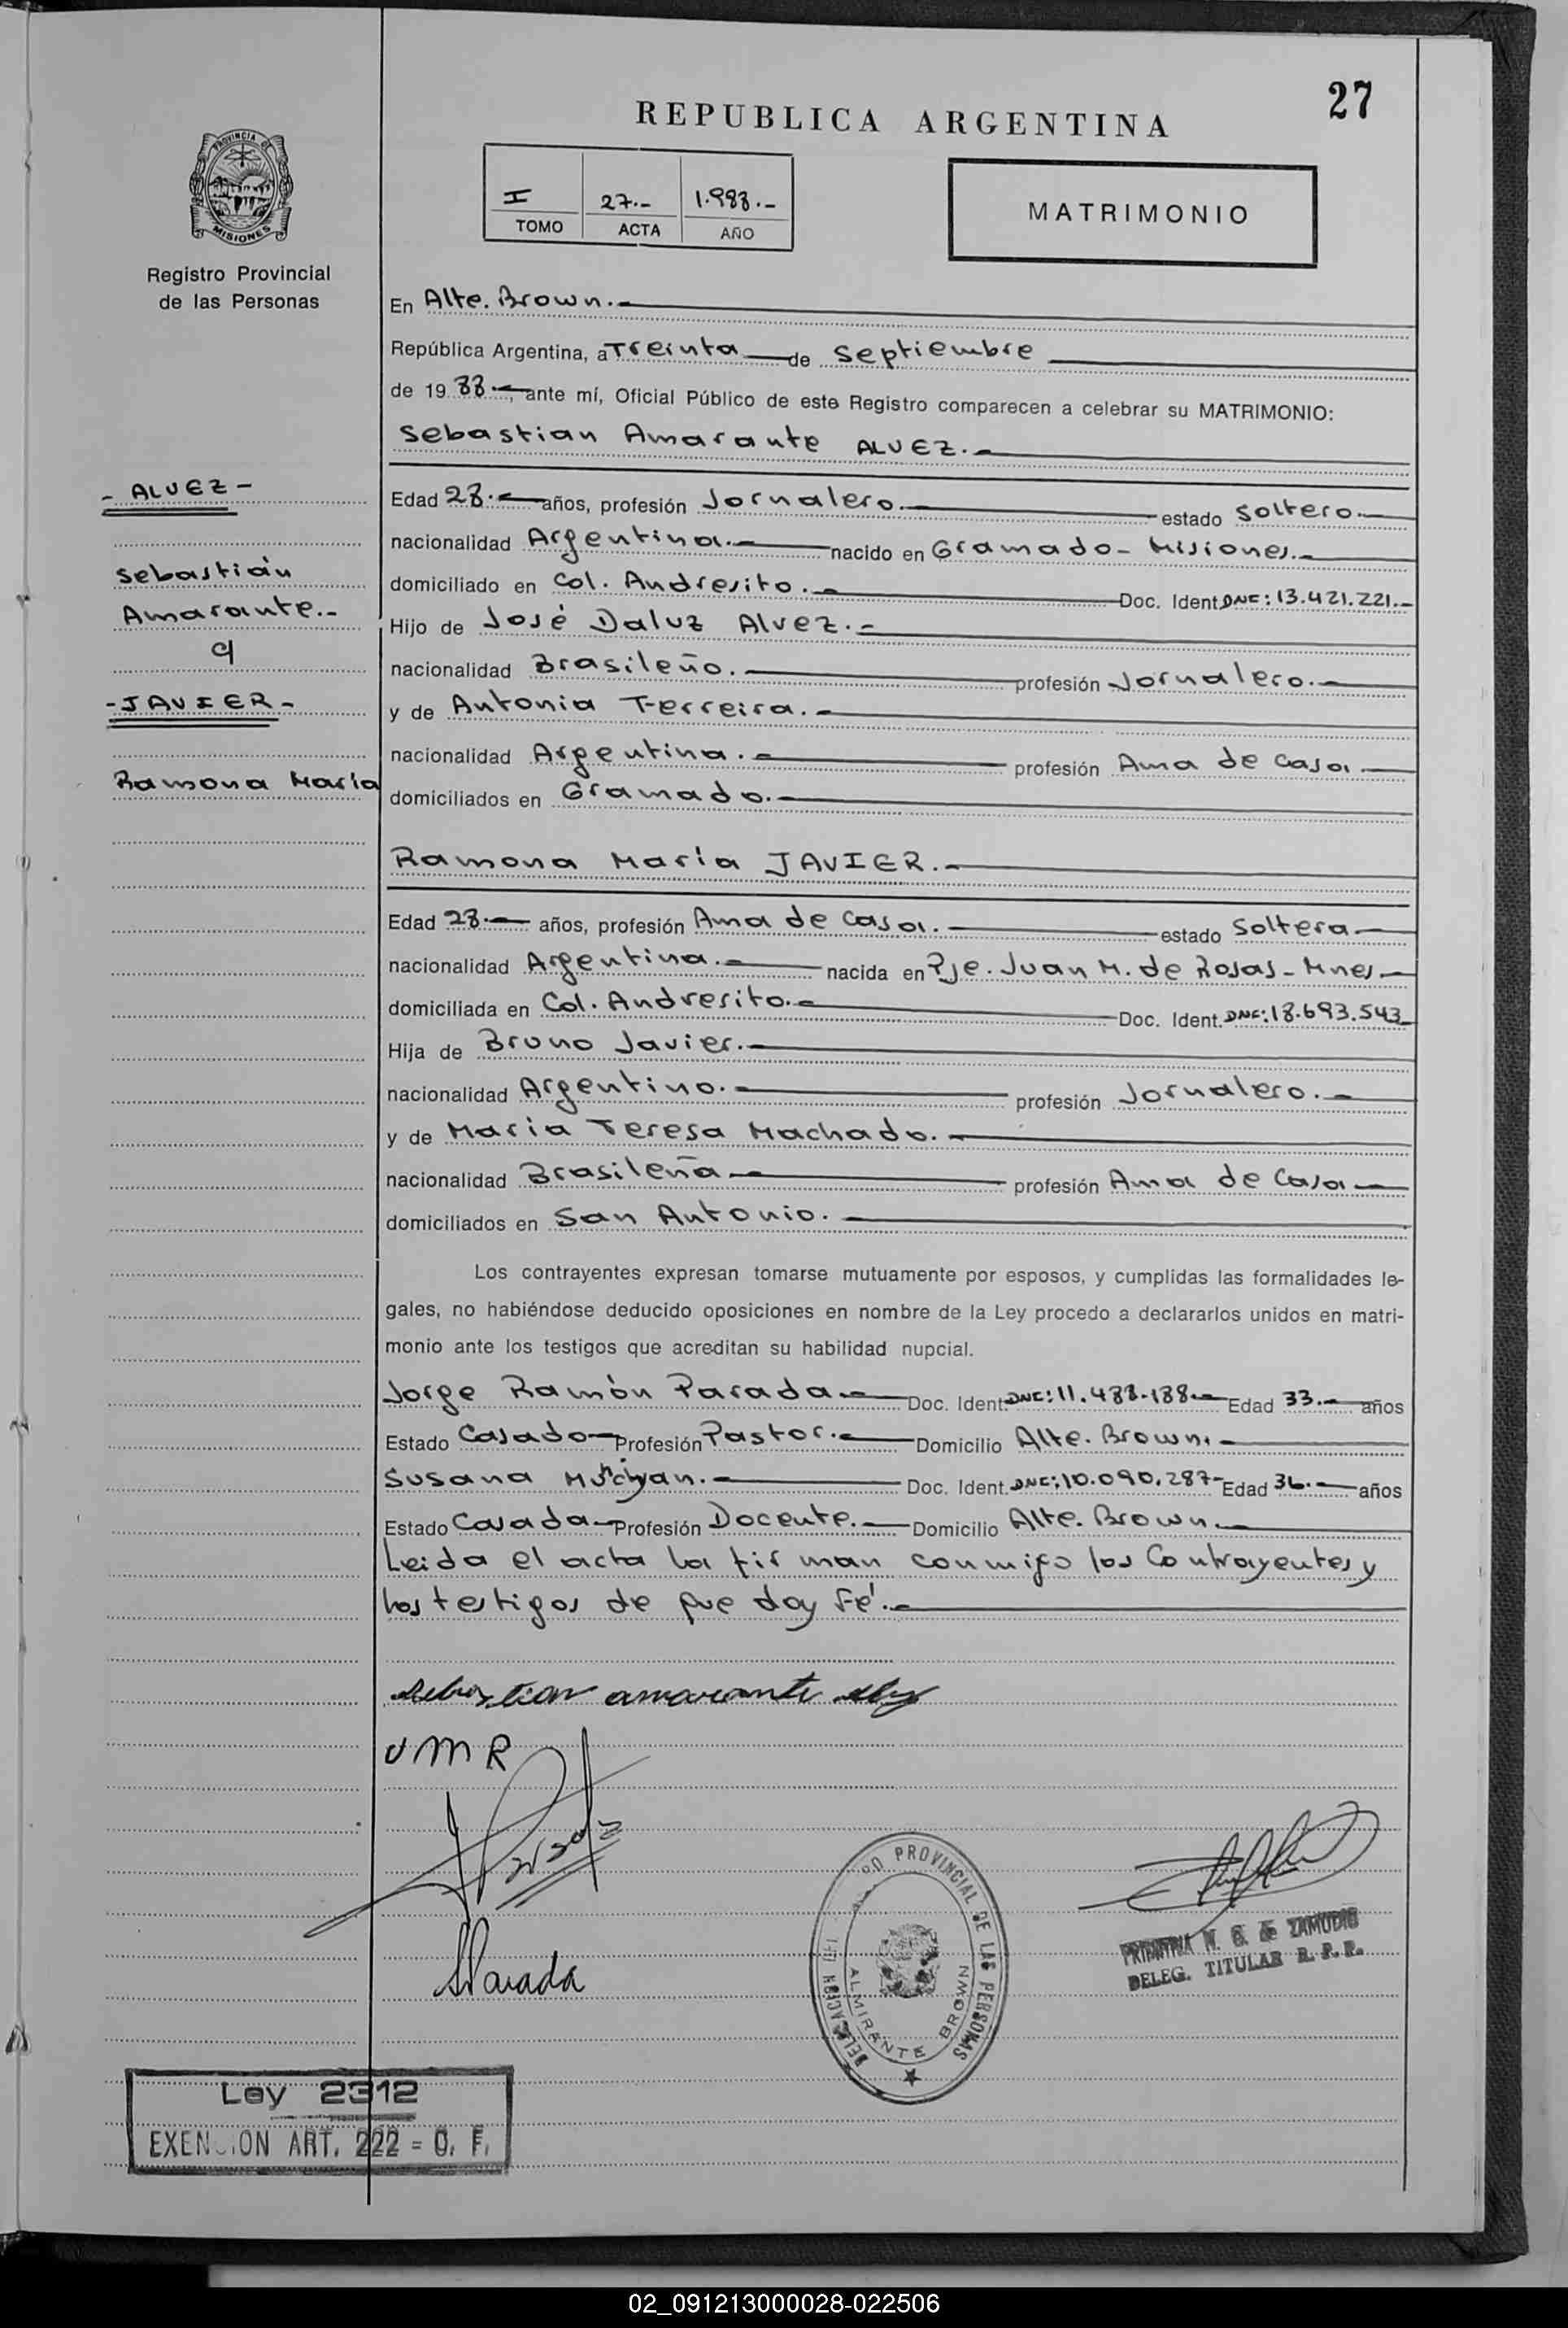 27
REPUBLICA ARGENTINA
PROVINCIA DE
MISIONES
Registro Provincial
de las Personas
I 27.- 1.988.-
TOMO ACTA AÑO
MATRIMONIO
En Alte. Brown.-
República Argentina, a Treinta de Septiembre
de 19 88.-, ante mí, Oficial Público de este Registro comparecen a celebrar su MATRIMONIO:
Sebastian Amarante ALVEZ.-
- ALVEZ -
Sebastián
Amarante.-
c/
- JAVIER -
Ramona María
Edad 28.- años, profesión Jornalero.- estado Soltero.-
nacionalidad Argentina.- nacido en Gramado- Misiones.-
domiciliado en Col. Andresito.- Doc. Ident. DNI: 13.421.221.-
Hijo de José Daluz Alvez.-
nacionalidad Brasileño.- profesión Jornalero.-
y de Antonia Ferreira.-
nacionalidad Argentina.- profesión Ama de Casa.-
domiciliados en Gramado.-
Ramona María JAVIER.-
Edad 28.- años, profesión Ama de Casa.- estado Soltera.-
nacionalidad Argentina.- nacida en Pje. Juan M. de Rosas- Mnes.-
domiciliada en Col. Andresito.- Doc. Ident. DNI: 18.693.543
Hija de Bruno Javier.-
nacionalidad Argentino.- profesión Jornalero.-
y de María Teresa Machado.-
nacionalidad Brasileña.- profesión Ama de Casa.-
domiciliados en San Antonio.-
Los contrayentes expresan tomarse mutuamente por esposos, y cumplidas las formalidades le-
gales, no habiéndose deducido oposiciones en nombre de la Ley procedo a declararlos unidos en matri-
monio ante los testigos que acreditan su habilidad nupcial.
Jorge Ramón Parada.- Doc. Ident. DNI: 11.488.188.- Edad 33.- años
Estado Casado- Profesión Pastor.- Domicilio Alte. Brown.-
Susana Doc. Ident. DNI: 10.090.287- Edad 36.- años
Estado Casada- Profesión Docente.- Domicilio Alte. Brown.-
Leida el acta la firman conmigo los Contrayentes y
los testigos de que doy Fé.-
Sebastian amarante
J M R
Parada
SParada
PROVINCIAL DE LAS PERSONAS
DELEGACION
ALMIRANTE BROWN
N. G. de ZAMUDIO
DELEG. TITULAR R. P. P.
Ley 2312
EXENCION ART. 222 = C. F.
02_091213000028-022506